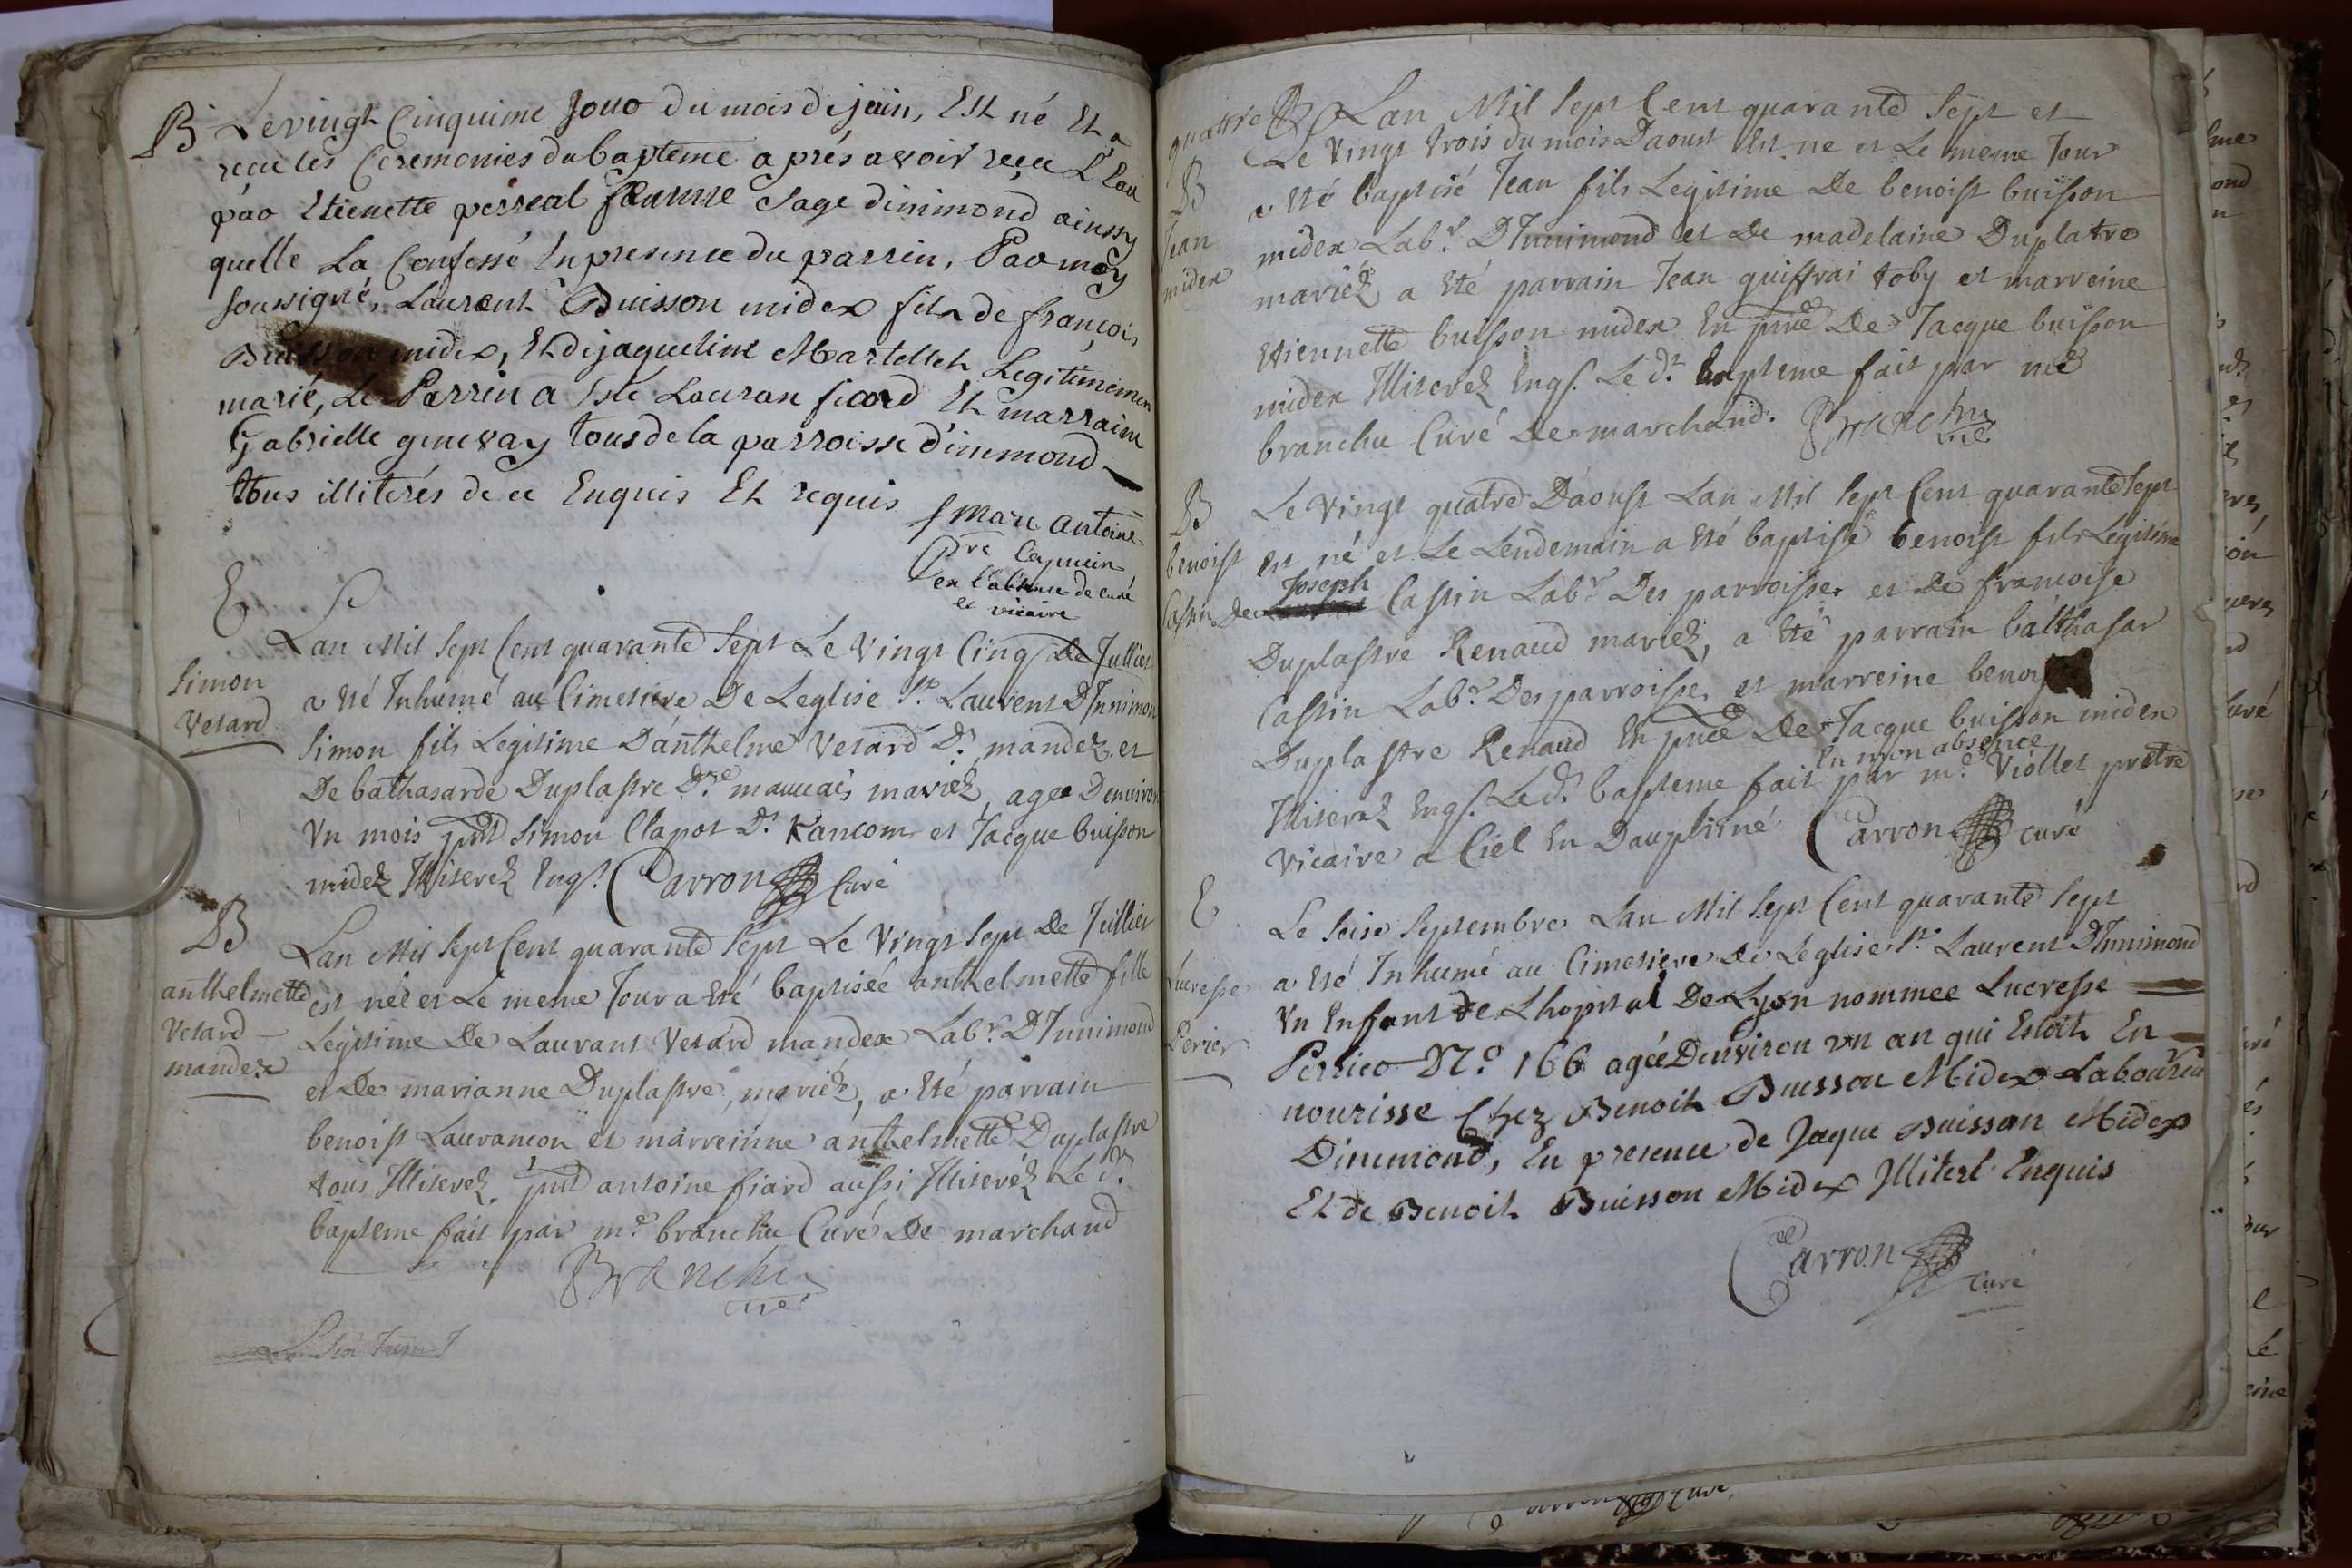 B Le vingt Cinquime Jour du mois de juin, Est né Et a
reçu les Ceremonies du bapteme aprés avoir reçu L'Eau
par Etienette perreal famme sage dinimond ainssy
quelle La Confessé En presence du parrin, Par moy
soussigné, Laurent Buisson midex fils de francois
Buisson midex, Et de jaqueline Martellet Legitimemen
marié, Le Parrin a Esté Lauran fiard Et marraine
Gabrielle genevay tous de la parroisse d'inimond
tous illiterés de ce Enquis Et requis
f Marc Antoine
Pre Capucin
en l'absence de curé
et vicaire
E
Lan Mil Sept Cent quarante Sept Le Vingt Cinq de Julliet
Simon
Vetard
a Eté Inhumé au Cimetiere De Leglise St. Laurent DInnimon
Simon fils Legitime Danthelme Vetard Dt. mandez et
De bathasarde Duplastre Dte mauvais mariéz, agee Denviron
Vn mois pnt Simon Clapot Dt. Rancom et Jacque buisson
midez Illiterez Enqs. Carron Curé
B
Lan Mil Sept Cent quarante Sept Le Vingt Sept De Juillet
anthelmette
Vetard
mandex
est née et Le meme Jour a Eté baptisée anthelmette fille
Legitime De Laurant Vetard mandex Labr. DInnimond
et De marianne Duplastre, mariéz, a Eté parrain
benoist Laurancon et marreinne anthelmette Duplastre
tous Illiterez. pnt antoine fiard aussi Illiteréz Le dt.
bapteme fait par mre branchu Curé De marchand
Branchu
curé
quattre Lan Mil Sept Cent quarante Sept et
Le Vingt trois du mois Daoust Est ne et Le meme Jour
B
Jean
midex
a Eté baptisé Jean fils Legitime De benoist buisson
midex Labr. DInnimond et De madelaine Duplatre
mariéz a Eté parrain Jean quiffrai toby et marreine
Etiennette buisson midex En pnce De Jacque buisson
midex Illiterez Enqs. Le dt. bapteme fait par me
branchu Curé De marchand. Branchu
curé
B
Le Vingt quatre Daoust Lan Mil Sept Cent quarante Sept
benoist
Cassin
est né et Le Lendemain a Eté baptise benoist fils Legitime
De Joseph Cassin Labr Des parroisse et De francoise
Duplastre Renaud mariez, a Eté parrain balthasar
Cassin Labr Des parroisse et marreine benoi
Duplastre Renaud En pnce De Jacque buisson midex
En mon absence
Illiterez Enqs. Le dt. bapteme fait par mre Viollet pretre
Vicaire a Ciel En Dauphiné Carron curé
E
Le Seise Septembre Lan Mil Sept Cent quarante Sept
Lucresse
Perier
a Eté Inhumé au Cimetiere De Leglise St. Laurent DInnimond
Vn Enfant de Lhopital De Lyon nommee Lucresse
Perrier N.o 166 agée Denviron vn an qui Estoit En
nourisse Chez Benoit Buisson Midex Laboureur
Dinimond, En presence de Jaque Buisson Midex
Et de Benoit Buisson Midex Illiteré Enquis
Carron
Curé